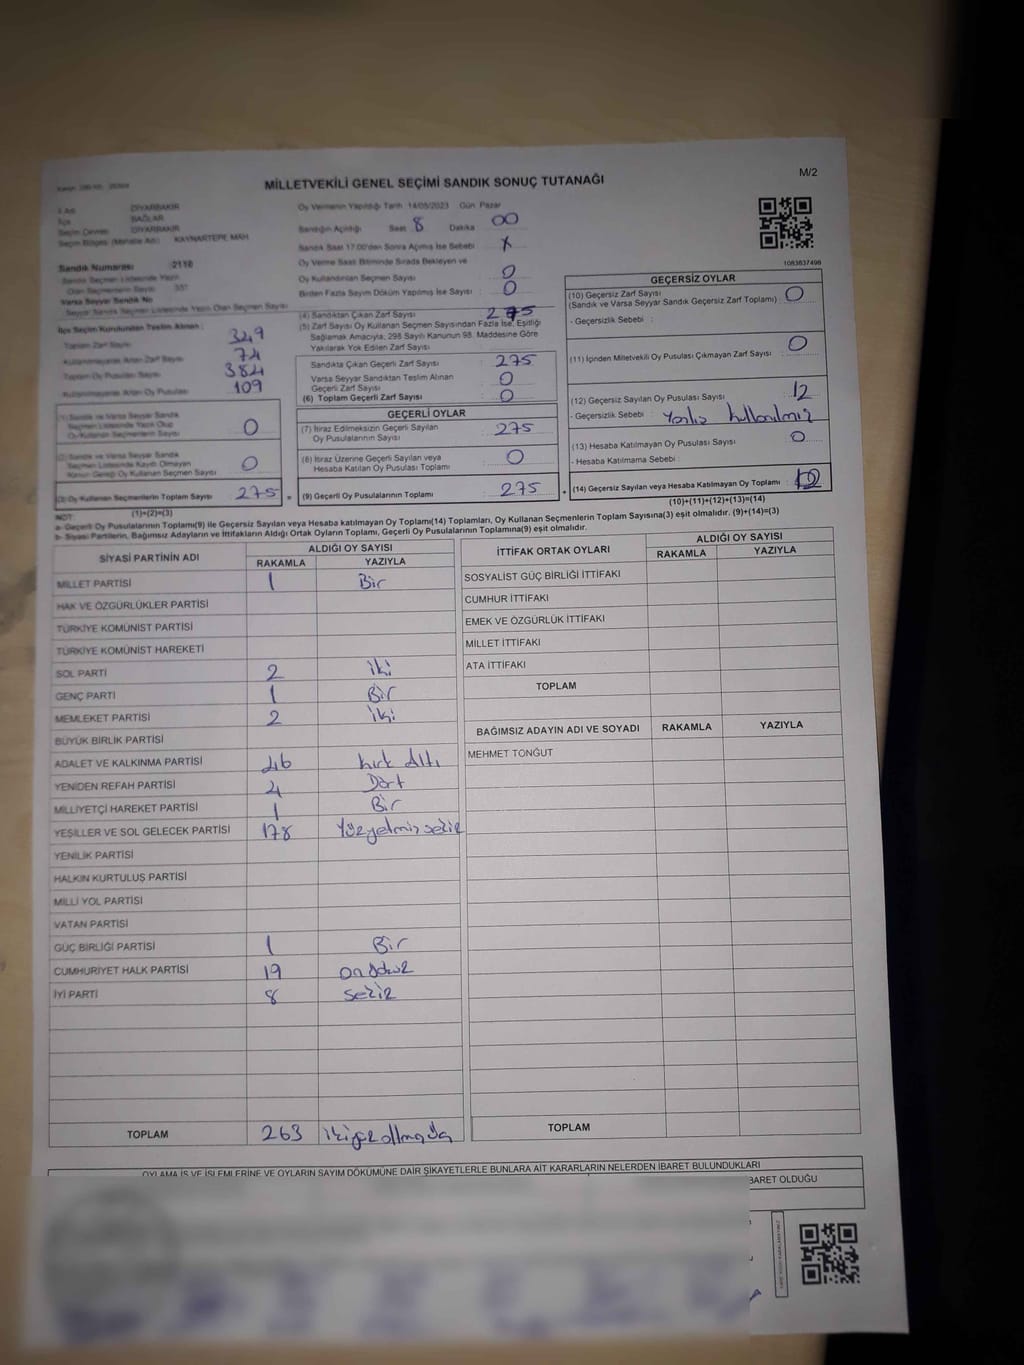 MİLLETVEKİLİ GENEL SEÇİMİ SANDIK SONUÇ TUTANAĞI
M/2
İl Adı DİYARBAKIR
İlçe BAĞLAR
Seçim Çevresi DİYARBAKIR
Seçim Bölgesi (Mahalle Adı) KAYNARTEPE MAH
Oy Vermenin Yapıldığı Tarih 14/05/2023 Gün Pazar
Sandığın Açıldığı Saat 8 Dakika 00
Sandık Saat 17:00'den Sonra Açılmış İse Sebebi X
Oy Verme Saati Bitiminde Sırada Bekleyen ve
Oy Kullandırılan Seçmen Sayısı 0
Birden Fazla Sayım Döküm Yapılmış İse Sayısı 0
1083637498
Sandık Numarası
Varsa Seyyar Sandık No
İlçe Seçim Kurulundan Teslim Alınan :
Toplam Zarf Sayısı 349
Kullanılmayarak Artan Zarf Sayısı 74
Toplam Oy Pusulası Sayısı 384
Kullanılmayarak Artan Oy Pusulası 109
(1) Sandık ve Varsa Seyyar Sandık
Seçmen Listesinde Yazılı Olup
Oy Kullanan Seçmenlerin Sayısı 0
(2) Sandık ve Varsa Seyyar Sandık
Seçmen Listesinde Kayıtlı Olmayan
Kanun Gereği Oy Kullanan Seçmen Sayısı 0
(3) Oy Kullanan Seçmenlerin Toplam Sayısı 275
(1)+(2)=(3)
(4) Sandıktan Çıkan Zarf Sayısı 275
(5) Zarf Sayısı Oy Kullanan Seçmen Sayısından Fazla İse, Eşitliği
Sağlamak Amacıyla, 298 Sayılı Kanunun 98. Maddesine Göre
Yakılarak Yok Edilen Zarf Sayısı
Sandıkta Çıkan Geçerli Zarf Sayısı 275
Varsa Seyyar Sandıktan Teslim Alınan
Geçerli Zarf Sayısı 0
(6) Toplam Geçerli Zarf Sayısı 0
GEÇERLİ OYLAR
(7) İtiraz Edilmeksizin Geçerli Sayılan
Oy Pusulalarının Sayısı 275
(8) İtiraz Üzerine Geçerli Sayılan veya
Hesaba Katılan Oy Pusulası Toplamı 0
(9) Geçerli Oy Pusulalarının Toplamı 275
GEÇERSİZ OYLAR
(10) Geçersiz Zarf Sayısı
(Sandık ve Varsa Seyyar Sandık Geçersiz Zarf Toplamı) : 0
- Geçersizlik Sebebi :
(11) İçinden Milletvekili Oy Pusulası Çıkmayan Zarf Sayısı 0
(12) Geçersiz Sayılan Oy Pusulası Sayısı 12
- Geçersizlik Sebebi : Yanlış kullanılmış
(13) Hesaba Katılmayan Oy Pusulası Sayısı 0
- Hesaba Katılmama Sebebi :
(14) Geçersiz Sayılan veya Hesaba Katılmayan Oy Toplamı : 12
(10)+(11)+(12)+(13)=(14)
NOT:
a- Geçerli Oy Pusulalarının Toplamı(9) ile Geçersiz Sayılan veya Hesaba katılmayan Oy Toplamı(14) Toplamları, Oy Kullanan Seçmenlerin Toplam Sayısına(3) eşit olmalıdır. (9)+(14)=(3)
b- Siyasi Partilerin, Bağımsız Adayların ve İttifakların Aldığı Ortak Oyların Toplamı, Geçerli Oy Pusulalarının Toplamına(9) eşit olmalıdır.
SİYASİ PARTİNİN ADI
ALDIĞI OY SAYISI
RAKAMLA YAZIYLA
MİLLET PARTİSİ 1 Bir
HAK VE ÖZGÜRLÜKLER PARTİSİ
TÜRKİYE KOMÜNİST PARTİSİ
TÜRKİYE KOMÜNİST HAREKETİ
SOL PARTİ 2 iki
GENÇ PARTİ 1 Bir
MEMLEKET PARTİSİ 2 iki
BÜYÜK BİRLİK PARTİSİ
ADALET VE KALKINMA PARTİSİ 46 kırk Altı
YENİDEN REFAH PARTİSİ 4 Dört
MİLLİYETÇİ HAREKET PARTİSİ 1 Bir
YEŞİLLER VE SOL GELECEK PARTİSİ 178 Yüzyetmişsekiz
YENİLİK PARTİSİ
HALKIN KURTULUŞ PARTİSİ
MİLLİ YOL PARTİSİ
VATAN PARTİSİ
GÜÇ BİRLİĞİ PARTİSİ 1 Bir
CUMHURİYET HALK PARTİSİ 19 ondokuz
İYİ PARTİ 8 sekiz
TOPLAM 263 ikiyüz altmışüç
İTTİFAK ORTAK OYLARI
ALDIĞI OY SAYISI
RAKAMLA YAZIYLA
SOSYALİST GÜÇ BİRLİĞİ İTTİFAKI
CUMHUR İTTİFAKI
EMEK VE ÖZGÜRLÜK İTTİFAKI
MİLLET İTTİFAKI
ATA İTTİFAKI
TOPLAM
BAĞIMSIZ ADAYIN ADI VE SOYADI RAKAMLA YAZIYLA
MEHMET TONĞUT
TOPLAM
OYLAMA İŞ VE İŞLEMLERİNE VE OYLARIN SAYIM DÖKÜMÜNE DAİR ŞİKAYETLERLE BUNLARA AİT KARARLARIN NELERDEN İBARET BULUNDUKLARI
BARET OLDUĞU